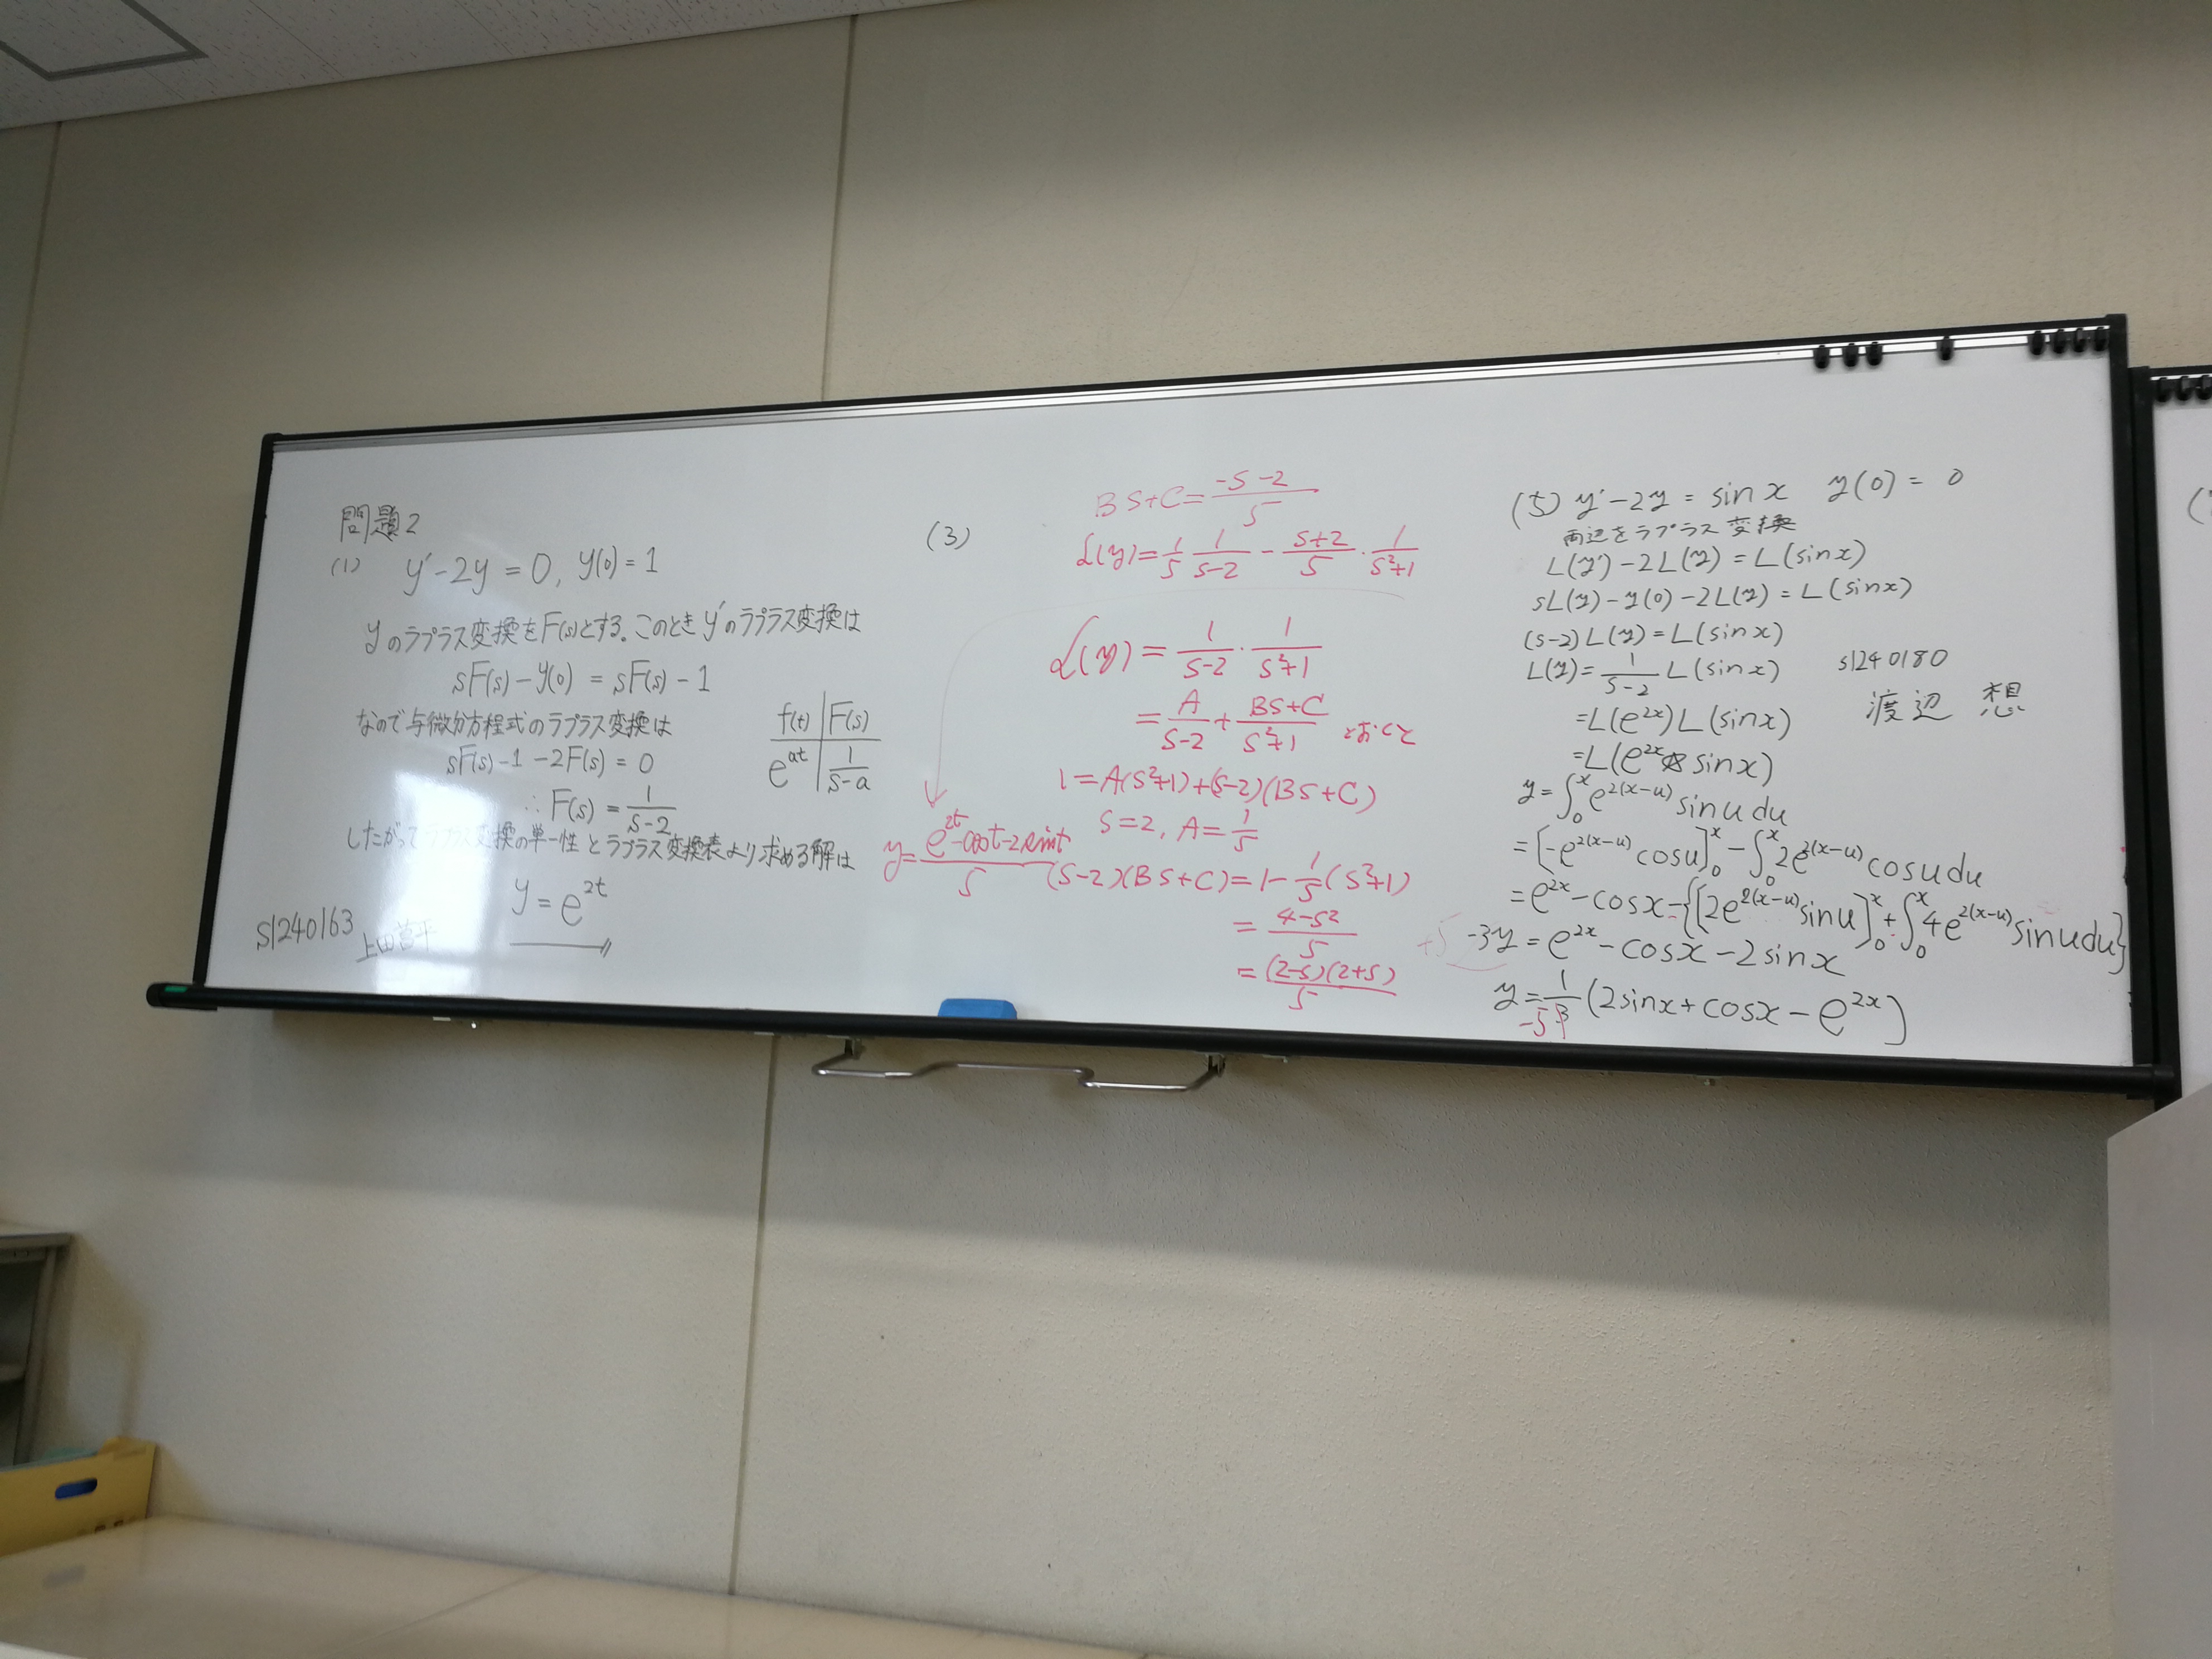 問題2
(1) y'-2y=0, y(0)=1
yのラプラス変換をF(s)とする。このときy'のラプラス変換は
sF(s)-y(0)=sF(s)-1
なので与微分方程式のラプラス変換は
sF(s)-1-2F(s)=0
∴F(s)=1/(s-2)
したがってラプラス変換の単一性とラプラス変換表より求める解は
y=e^{2t}
S1240163
f(t) | F(s)
e^{at} | 1/(s-a)
(3)
BS+C=(-S-2)/5
L(y)=1/5 1/(S-2) - (S+2)/5・1/(S²+1)
L(y)=1/(S-2)・1/(S²+1)
=A/(S-2)+(BS+C)/(S²+1) とおくと
1=A(S²+1)+(S-2)(BS+C)
S=2, A=1/5
(S-2)(BS+C)=1-1/5(S²+1)
=(4-S²)/5
=(2-S)(2+S)/5
y=(e^{2t}-cost-2sint)/5
(5) y'-2y=sinx y(0)=0
両辺をラプラス変換
L(y')-2L(y)=L(sinx)
sL(y)-y(0)-2L(y)=L(sinx)
(s-2)L(y)=L(sinx)
L(y)=1/(s-2) L(sinx)
=L(e^{2x})L(sinx)
=L(e^{2x}*sinx)
y=∫_0^x e^{2(x-u)} sinu du
=[-e^{2(x-u)}cosu]_0^x-∫_0^x 2e^{2(x-u)}cosudu
=e^{2x}-cosx-{[2e^{2(x-u)}sinu]_0^x+∫_0^x 4e^{2(x-u)}sinudu}
+5 -3y=e^{2x}-cosx-2sinx
y=1/3(2sinx+cosx-e^{2x})
-5
s1240180
渡辺 想